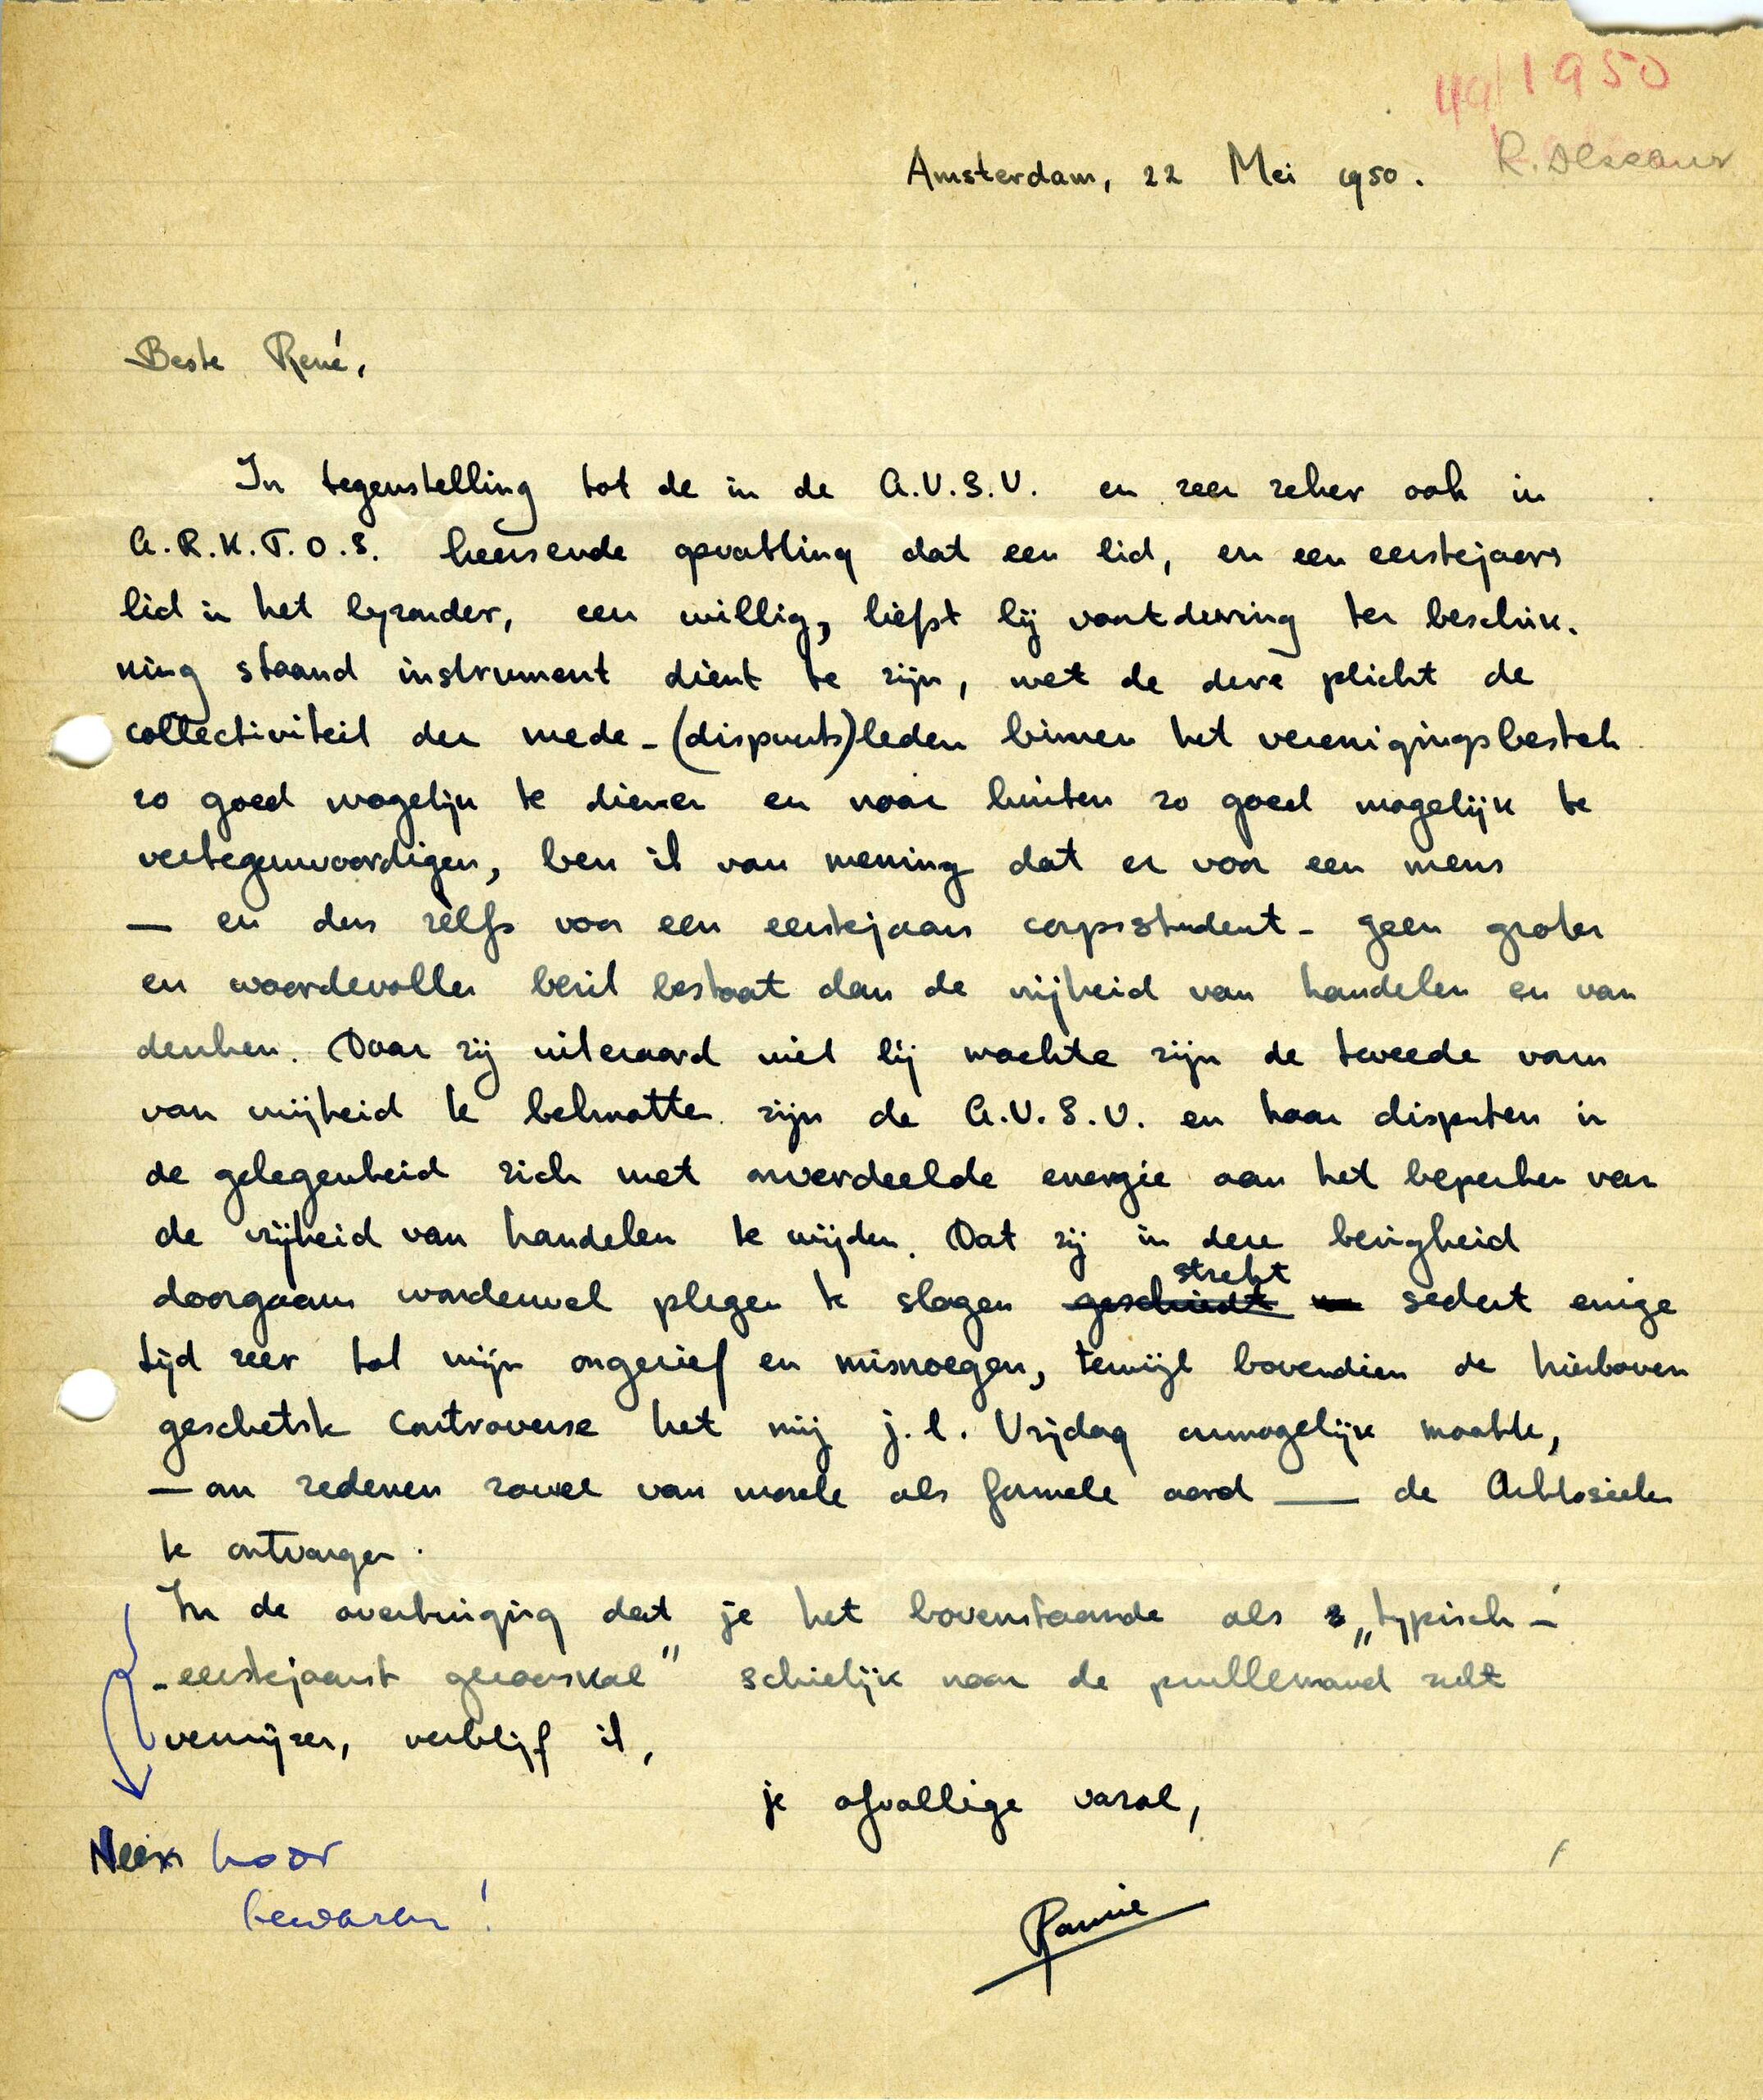 49/1950
Amsterdam, 22 Mei 1950.
R.
Beste René,
In tegenstelling tot de in de A.V.S.V. en zeer zeker ook in
A.R.K.T.O.S. heersende opvatting dat een lid, en een eerstejaars
lid in het byzonder, een willig, liefst bij voortduring ter beschik-
king staand instrument dient te zijn, met de dure plicht de
collectiviteit der mede-(dispuuts)leden binnen het verenigingsbestek
zo goed mogelijk te dienen en naar buiten zo goed mogelijk te
vertegenwoordigen, ben ik van mening dat er voor een mens
— en dus zelfs voor een eerstejaars corpsstudent - geen groter
en waardevoller bezit bestaat dan de vrijheid van handelen en van
denken. Daar zij uiteraard niet bij machte zijn de tweede vorm
van vrijheid te beknotten zijn de A.V.S.V. en haar disputen in
de gelegenheid zich met onverdeelde energie aan het beperken van
de vrijheid van handelen te wijden. Dat zij in deze bezigheid
doorgaans wonderwel plegen te slagen geschiedt strekt sedert enige
tijd zeer tot mijn ongerief en misnoegen, terwijl bovendien de hierboven
geschetste controverse het mij j.l. Vrijdag onmogelijk maakte,
— om redenen zowel van morele als formele aard — de Arktosieten
te ontvangen.
In de overtuiging dat je het bovenstaande als „typisch-
-eerstejaarst geraaskal" schielijk naar de prullemand zult
verwijzen, verblijf ik,
je afvallige vazal,
Neen hoor
bewaren!